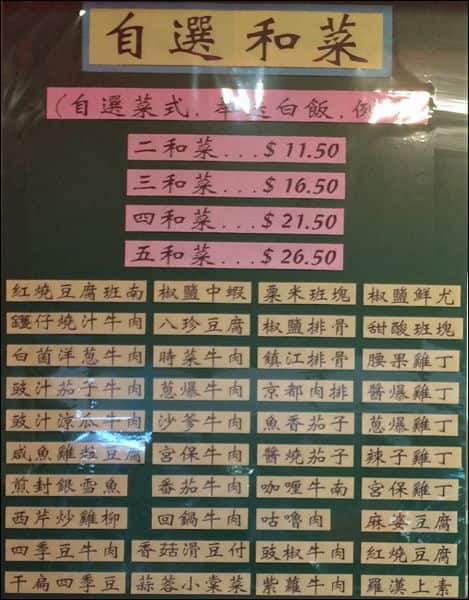 自選和菜
(自選菜式,奉送白飯,例
二和菜...$ 11.50
三和菜...$ 16.50
四和菜...$ 21.50
五和菜...$ 26.50
紅燒豆腐班南 椒鹽中蝦 粟米班塊 椒鹽鮮尤
鑊仔燒汁牛肉 八珍豆腐 椒鹽排骨 甜酸班塊
白菌洋葱牛肉 時菜牛肉 鎮江排骨 腰果雞丁
豉汁茄子牛肉 葱爆牛肉 京都肉排 醬爆雞丁
豉汁涼瓜牛肉 沙爹牛肉 魚香茄子 葱爆雞丁
咸魚雞粒豆腐 宮保牛肉 醬燒茄子 辣子雞丁
煎封銀雪魚 番茄牛肉 咖喱牛南 宮保雞丁
西芹炒雞柳 回鍋牛肉 咕嚕肉 麻婆豆腐
四季豆牛肉 香菇滑豆付 豉椒牛肉 紅燒豆腐
干扁四季豆 蒜蓉小棠菜 紫蘿牛肉 羅漢上素